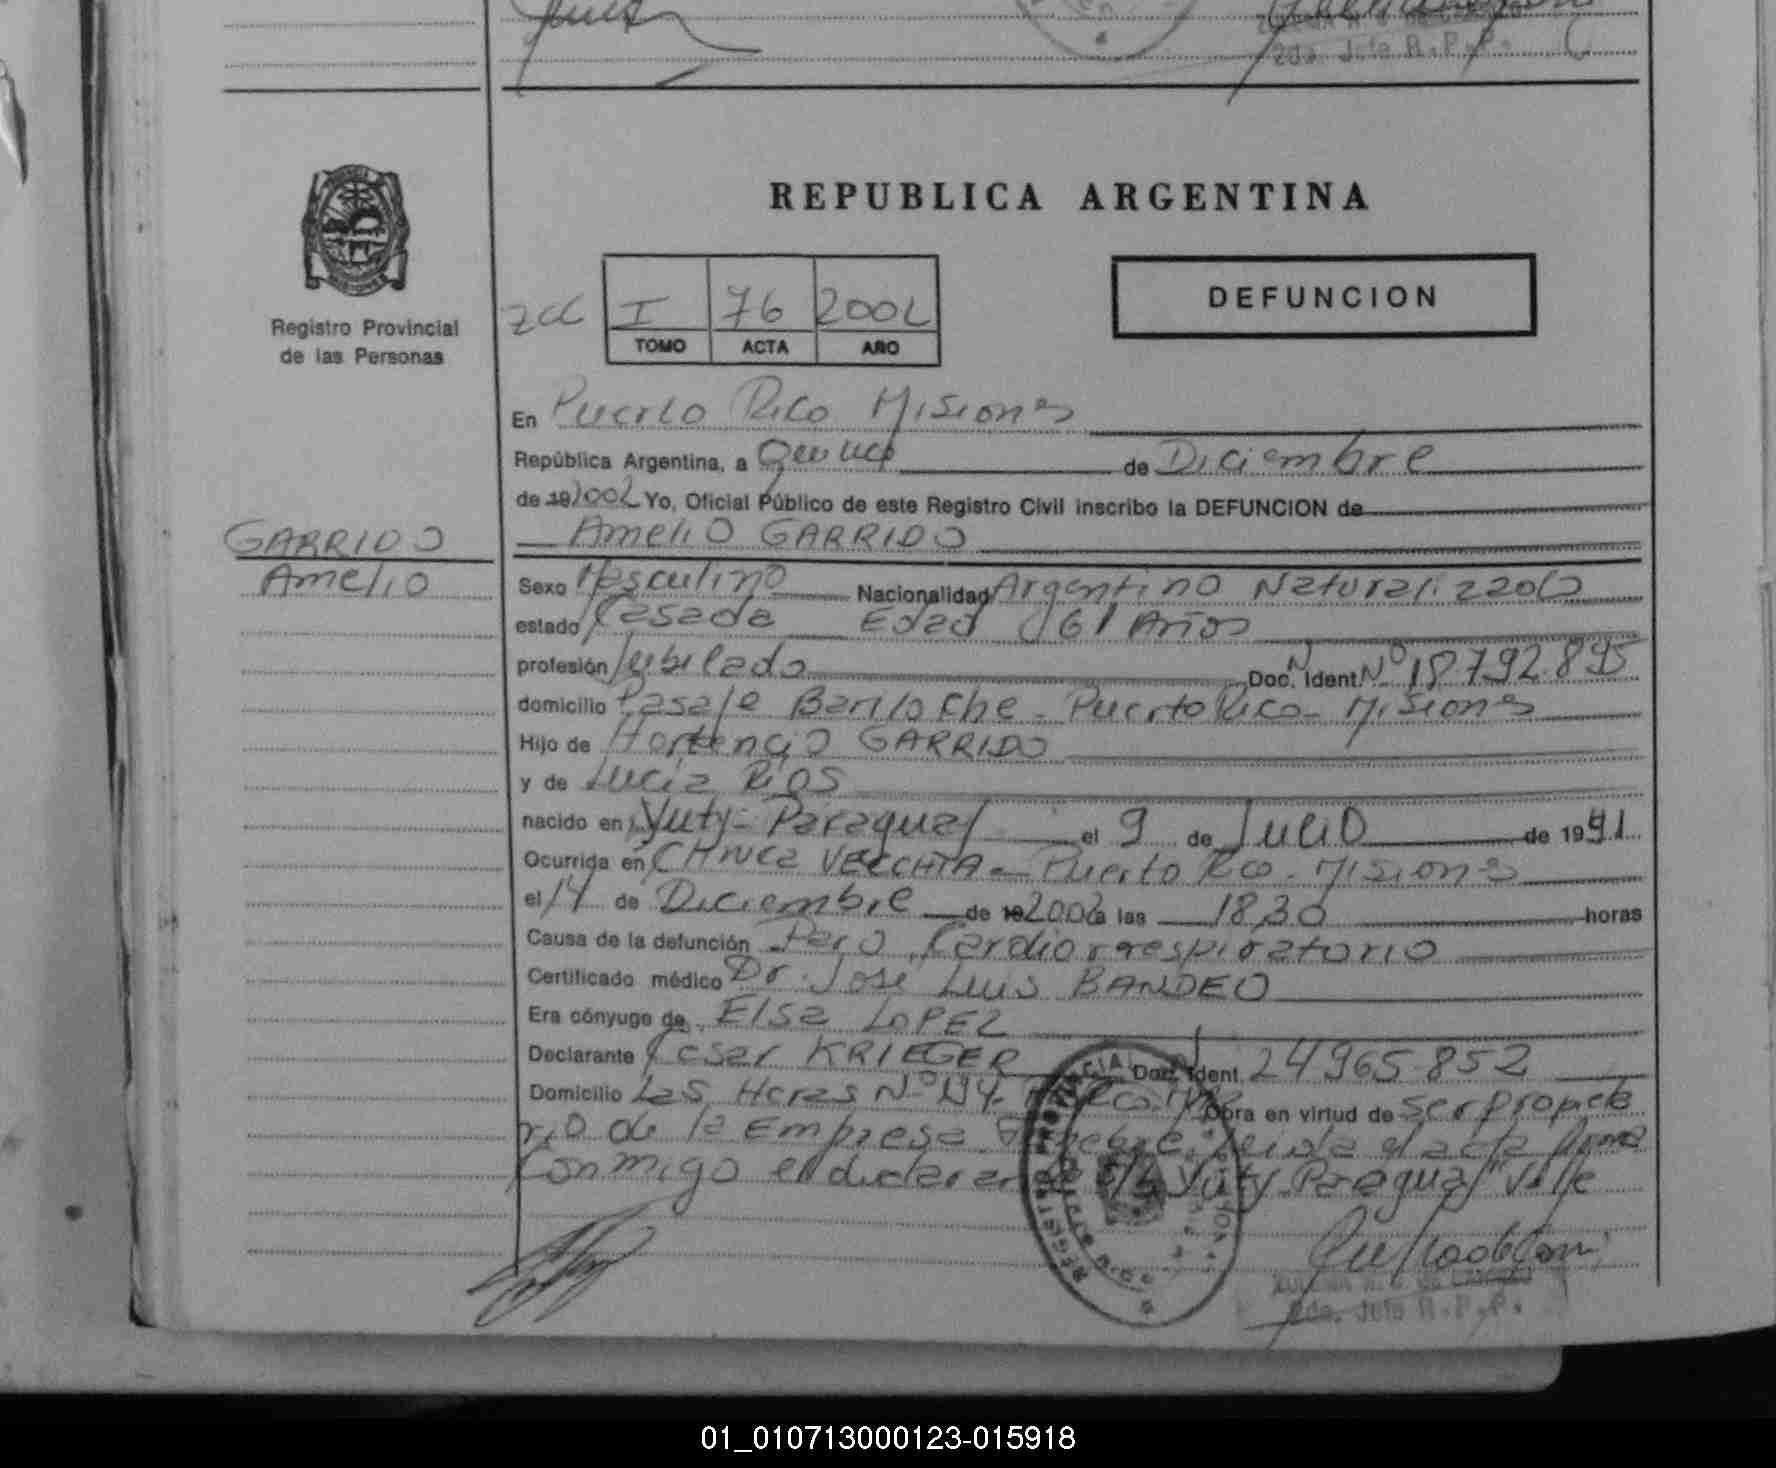 2da. Jefa R.P.P.
REPUBLICA ARGENTINA
Registro Provincial
de las Personas
I 76 2002
TOMO ACTA AÑO
DEFUNCION
En Puerto Rico Misiones
República Argentina, a Quince de Diciembre
de 19 2002 Yo, Oficial Público de este Registro Civil inscribo la DEFUNCION de
GARRIDO
Amelio
Amelio GARRIDO
Sexo Masculino Nacionalidad Argentino Naturalizado
estado Casada Edad 61 Años
profesión Jubilado Doc. Ident. Nº 18792.895
domicilio Pasaje Bariloche - Puerto Rico - Misiones
Hijo de Hortencio GARRIDO
y de Lucia RIOS
nacido en Yuty - Paraguay el 9 de Julio de 1941
Ocurrida en Clinica VECCHIA - Puerto Rico - Misiones
el 14 de Diciembre de 19 2002 a las 18,30 horas
Causa de la defunción Paro Cardiorrespiratorio
Certificado médico Dr. Jose Luis BANDEO
Era cónyuge de Elsa LOPEZ
Declarante Cesar KRIEGER Doc. Ident. 24965.852
Domicilio Las Heras Nº 194 - Obra en virtud de ser propieta
rio de la Empresa Funebre, leida el acta firma
Conmigo el declarante Yuty - Paraguay" Vale
REGISTRO PROVINCIAL
PUERTO RICO
2da. Jefa R.P.P.
01_010713000123-015918